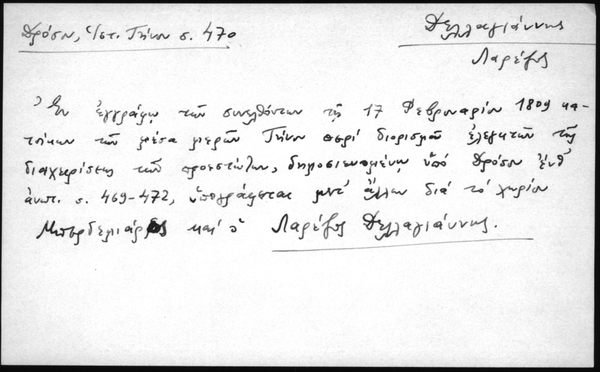 Δρόσου, Ἱστ. Τήνου σ. 470
Δελλαγιάννης
Λαρέζος
Ἐν ἐγγράφῳ τῶν συνελθόντων τῇ 17 Φεβρουαρίου 1809 κα-
τοίκων τῶν μέσα μερῶν Τήνου περί διορισμοῦ ἐλεγκτῶν τῆς
διαχειρίσεως τῶν προεστώτων, δημοσιευομένῳ ὑπό Δρόσου ἔνθ'
ἀνωτ. σ. 469-472, ὑπογράφεται μετ' ἄλλων διά τό χωρίον
καί ὁ Λαρέζος Δελλαγιάννης.